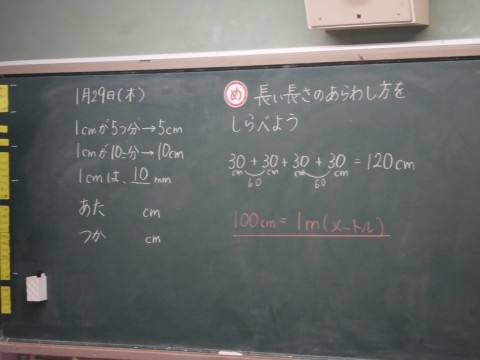 1月29日(木)
1cmが5つ分→5cm
1cmが10こ分→10cm
1cmは、10mm
あた cm
つか cm
め 長い長さのあらわし方を
しらべよう
30cm+30cm+30cm+30cm=120cm
60 60
100cm=1m(メートル)